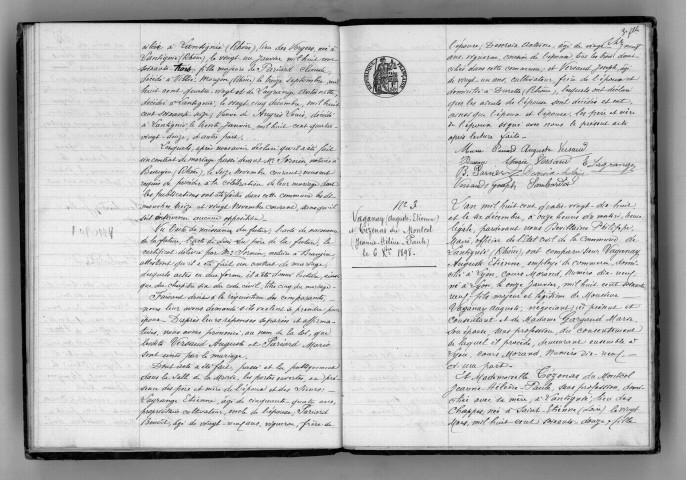 à Lantignié (Rhône), lieu des Vergers, né à
Lantignié (Rhône), le vingt un janvier mil huit cent
soixante trois, fille majeure de Pariard Etienne
décédé à Villié Morgon (Rhône), le treize septembre mil
huit cent quatre vingt sept de Lagrange Antoinette
décédée à Lantignié, le vingt cinq décembre, mil huit
cent soixante seize, Veuve de Louis, décédé
à Lantignié le trente Janvier, mil huit cent quatre
vingt douze, d'autre part.
Lesquels, après nous avoir déclaré qu'il a été fait
un contrat de mariage passé devant Me Sornin notaire à
Beaujeu (Rhône), le Seize Novembre courant nous ont
requis de procéder à la célébration de leur mariage dont
les publications ont été faites dans cette commune les
treize et vingt Novembre courant, sans qu'il
soit intervenu aucune opposition.
Vu l'acte de naissance du futur, l'acte de naissance
de la future, l'acte de décès du père de la future, le
certificat délivré par Me Sornin, notaire à Beaujeu
attestant qu'il a été fait un contrat de mariage,
desquels actes en due forme, il a été donné lecture, ainsi
que du chapitre six du code civil, titre cinq du mariage.
Faisant droit à la réquisition des comparants,
nous leur avons demandé s'ils veulent se prendre pour
époux. D'après leurs réponses séparées et affirma-
tives, nous avons prononcé, au nom de la loi, que
Versaud Auguste et Pariard Marie
sont unis par le mariage.
Dont acte a été fait, passé et lu publiquement
dans la salle de la Mairie, les portes ouvertes, en pré-
sence des père et mère de l'époux et des Sieurs
Lagrange Etienne, âgé de cinquante quatre ans,
propriétaire cultivateur, oncle de l'épouse, Pariard
Benoît, âgé de vingt cinq ans, vigneron, frère de
l'épouse, Antoine, âgé de vingt neuf
ans, vigneron, cousin de l'épouse tous les trois domi-
ciliés dans cette commune, et Versaud Joseph, âgé
de vingt un ans, cultivateur, frère de l'époux et
domicilié à Durette (Rhône), lesquels ont déclaré
que les aïeuls de l'épouse sont décédés et ont,
ainsi que l'époux et l'épouse, les père et mère
de l'époux signé avec nous le présent acte
après lecture faite.
Auguste Versaud
Marie Versaud E Lagrange
Versaud Joseph
No 3
Vaganay (Auguste-Etienne)
et Cozenas du Montcel
(Jeanne-Hélène-Paule)
le 6 Xbre 1898.
L'an mil huit cent quatre vingt dix huit
et le six décembre, à onze heures du matin, heure
légale, pardevant nous Philippe
Maire, officier de l'Etat civil de la Commune de
Lantignié (Rhône), ont comparu Sieur Vaganay
Auguste Etienne employé de commerce, domi-
cilié à Lyon, Cours Morand, numéro dix neuf,
né à Lyon, le onze Janvier, mil huit cent soixante
neuf, fils majeur et légitime de Monsieur
Vaganay Auguste, négociant, ici présent et
consentant et de Madame Marie
son épouse, sans profession, du consentement
de laquelle il procède, demeurant ensemble à
Lyon, cours Morand, Numéro dix-neuf,
d'une part.
Et Mademoiselle Cozenas du Montcel
Jeanne-Hélène-Paule, sans profession, domi-
ciliée avec sa mère, à Lantignié, lieu des
Chappes, née à Saint-Etienne (Loire) le vingt
Mars, mil huit cent soixante douze, fille